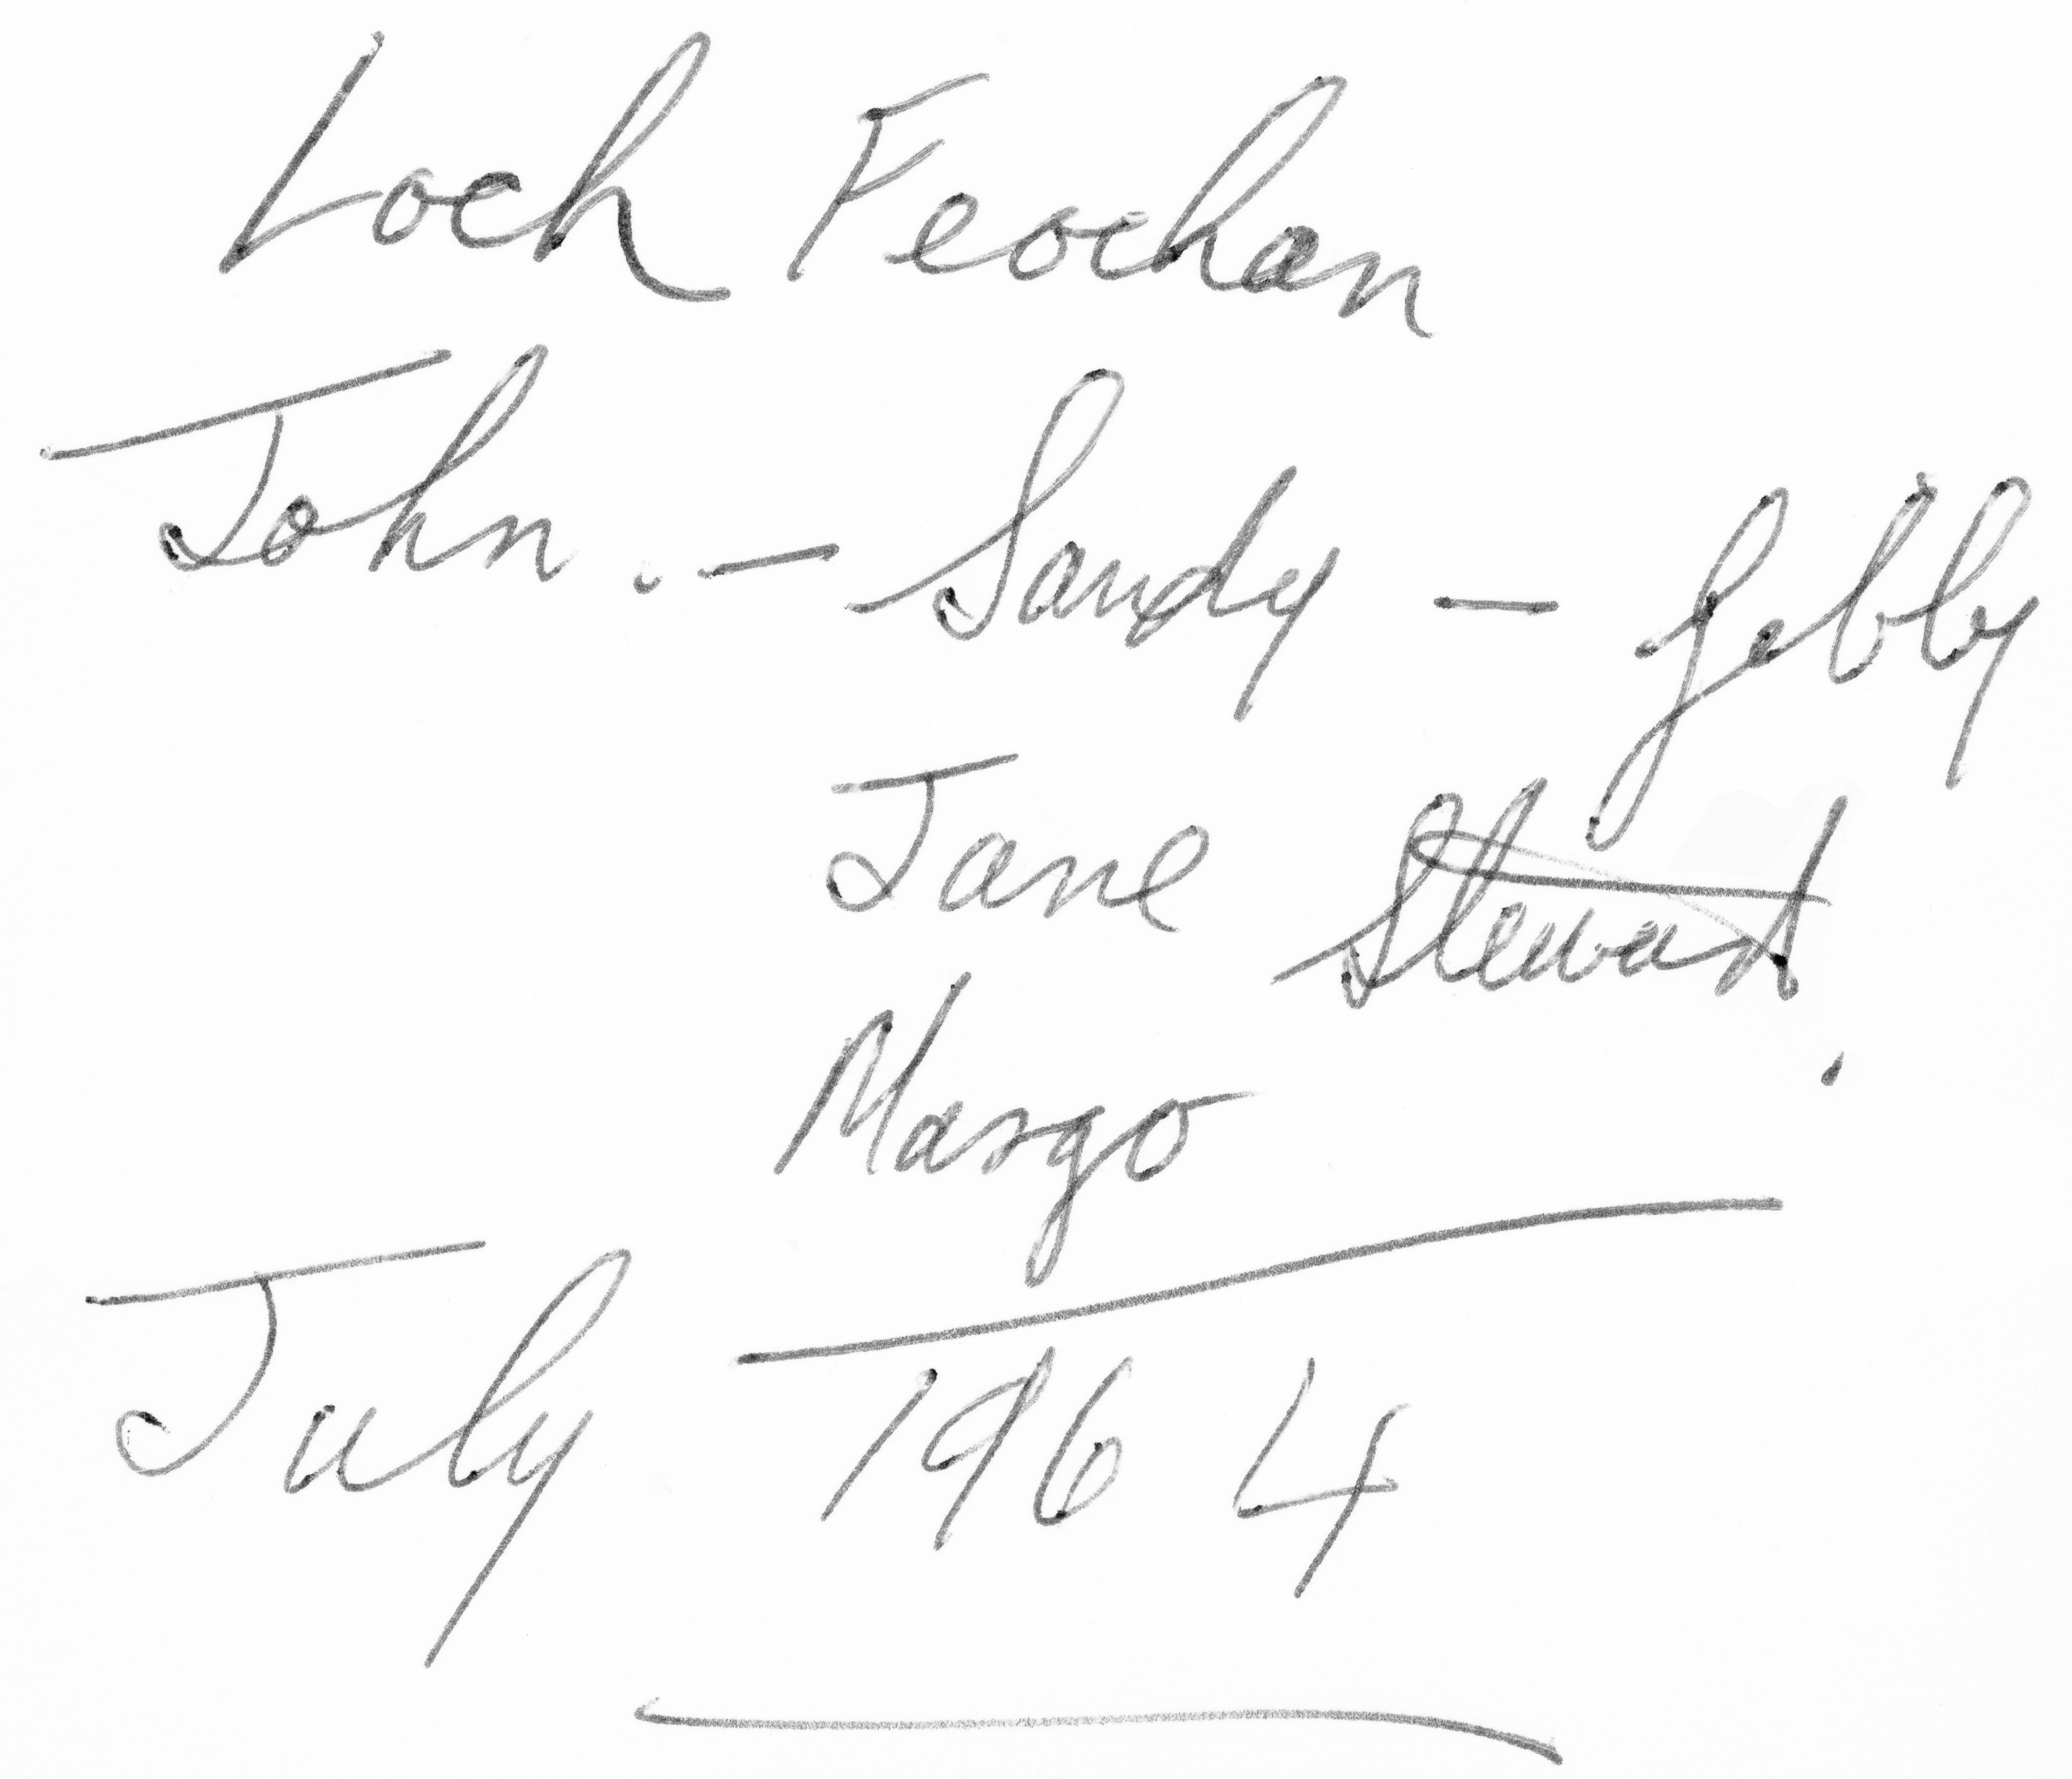 Loch Feochan
John. – Sandy – Gebly
Jane Stewart.
Margo
July 1964